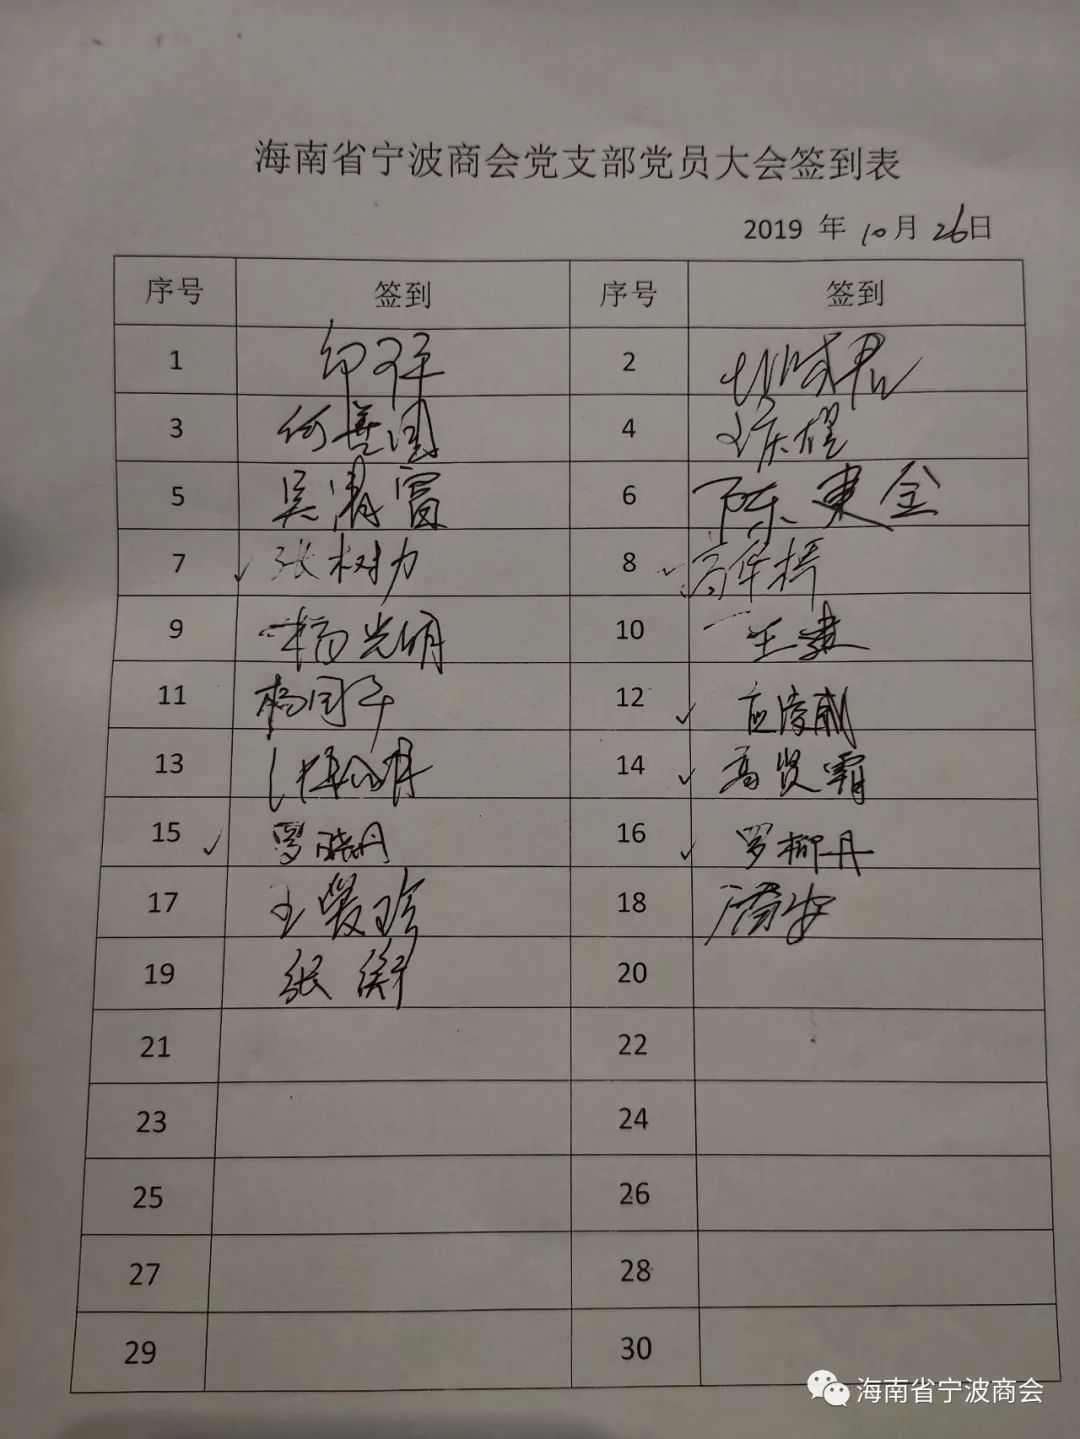 海南省宁波商会党支部党员大会签到表
2019 年 10月 26日
序号 签到 序号 签到
1 2
3 何善国 4
5 吴清富 6 陈東金
7 ✓ 张树力 8 ✓
9 杨光明 10 王建
11 杨国平 12 ✓ 应凌威
13 14 ✓ 高贤霸
15 ✓ 罗晓丹 16 ✓ 罗柳丹
17 王爱珍 18
19 张 20
21 22
23 24
25 26
27 28
29 30
海南省宁波商会